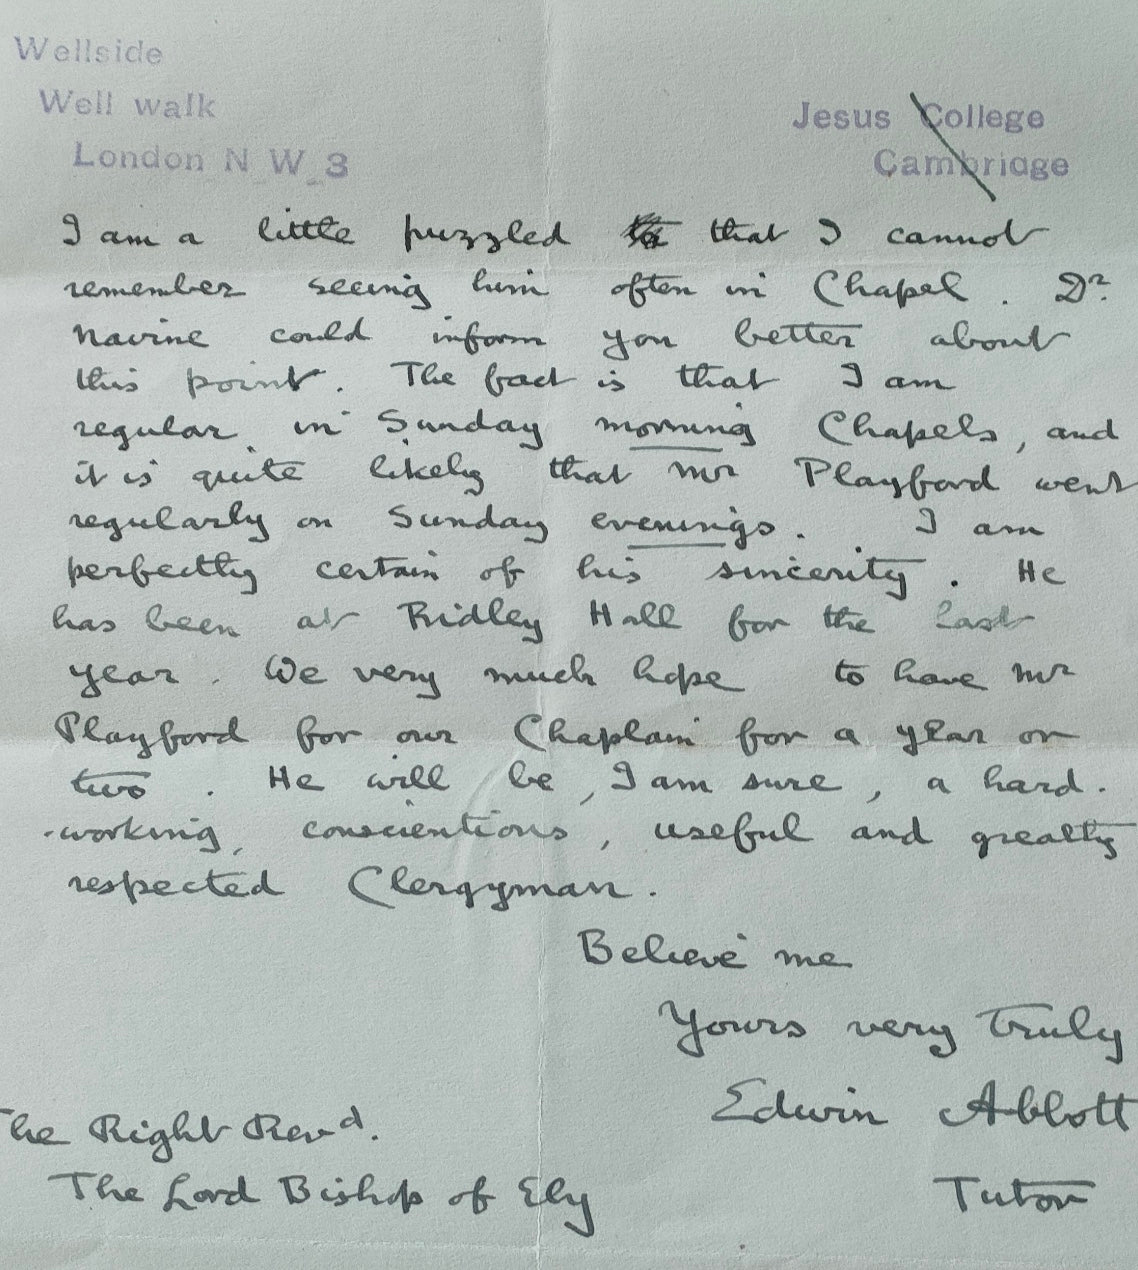 Wellside
Well walk
London N W_3
Jesus College
Cambridge
I am a little puzzled that I cannot
remember seeing him often in Chapel. Dr.
Navine could inform you better about
this point. The fact is that I am
regular in Sunday morning Chapels, and
it is quite likely that Mr Playford went
regularly on Sunday evenings. I am
perfectly certain of his sincerity. He
has been at Ridley Hall for the last
year. We very much hope to have Mr
Playford for our Chaplain for a year or
two. He will be, I am sure, a hard-
-working, conscientious, useful and greatly
respected Clergyman.
Believe me
Yours very truly
Edwin Abbott
Tutor
The Right Revd.
The Lord Bishop of Ely